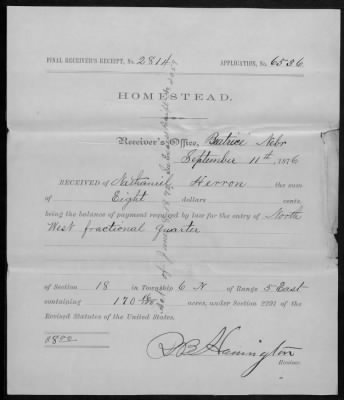 FINAL RECEIVER'S RECEIPT, No. 2814 APPLICATION, No. 6536
HOMESTEAD.
Receiver's Office, Beatrice Nebr
September 11th, 1876
RECEIVED of Nathaniel Herron the sum
of Eight dollars cents,
being the balance of payment required by law for the entry of North
West fractional quarter
of Section 18 in Township 6 N of Range 5 East
containing 170 acres, under Section 2291 of the
Revised Statutes of the United States.
$8.00
Receiver.